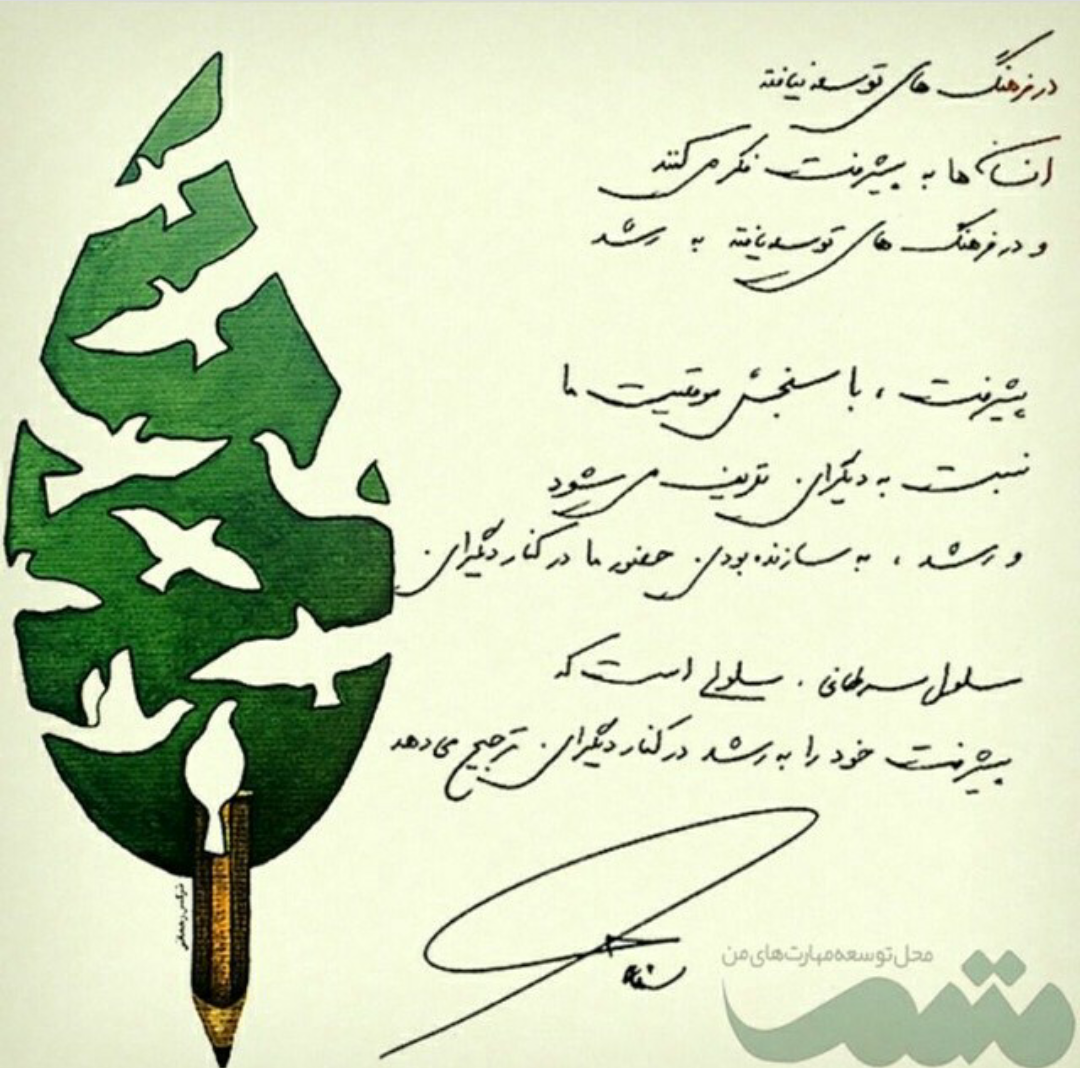 در فرهنگ های توسعه نیافته
انسان ها به پیشرفت فکر می کنند
و در فرهنگ های توسعه یافته به رشد
پیشرفت ، با سنجش موقعیت ما
نسبت به دیگران تعریف می شود
و رشد ، به سازنده بودن حضور ما در کنار دیگران.
سلول سرطانی . سلولی است که
پیشرفت خود را به رشد در کنار دیگران ترجیح می دهد
نرگس رحمانی
محل توسعه مهارت‌های من
متمم